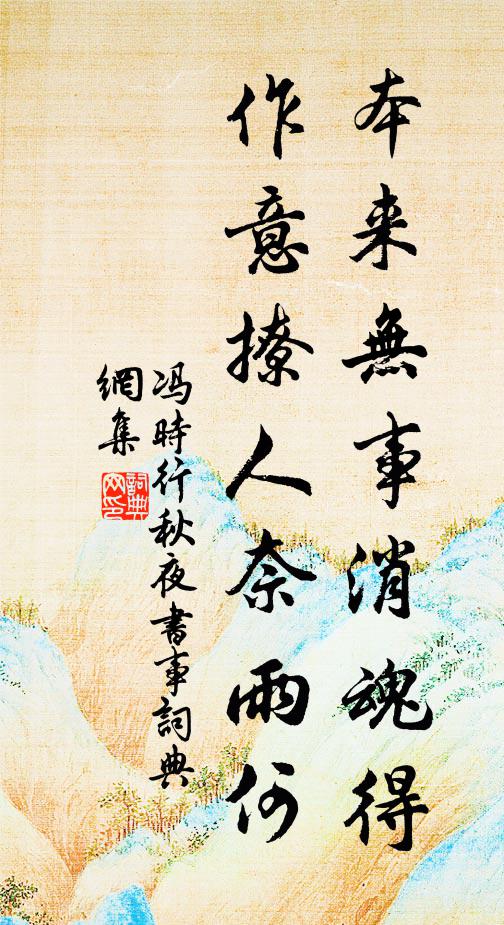 本来無事消魂得
作意撩人奈雨何
冯時行秋夜書事詞典
網集
詞典
网印